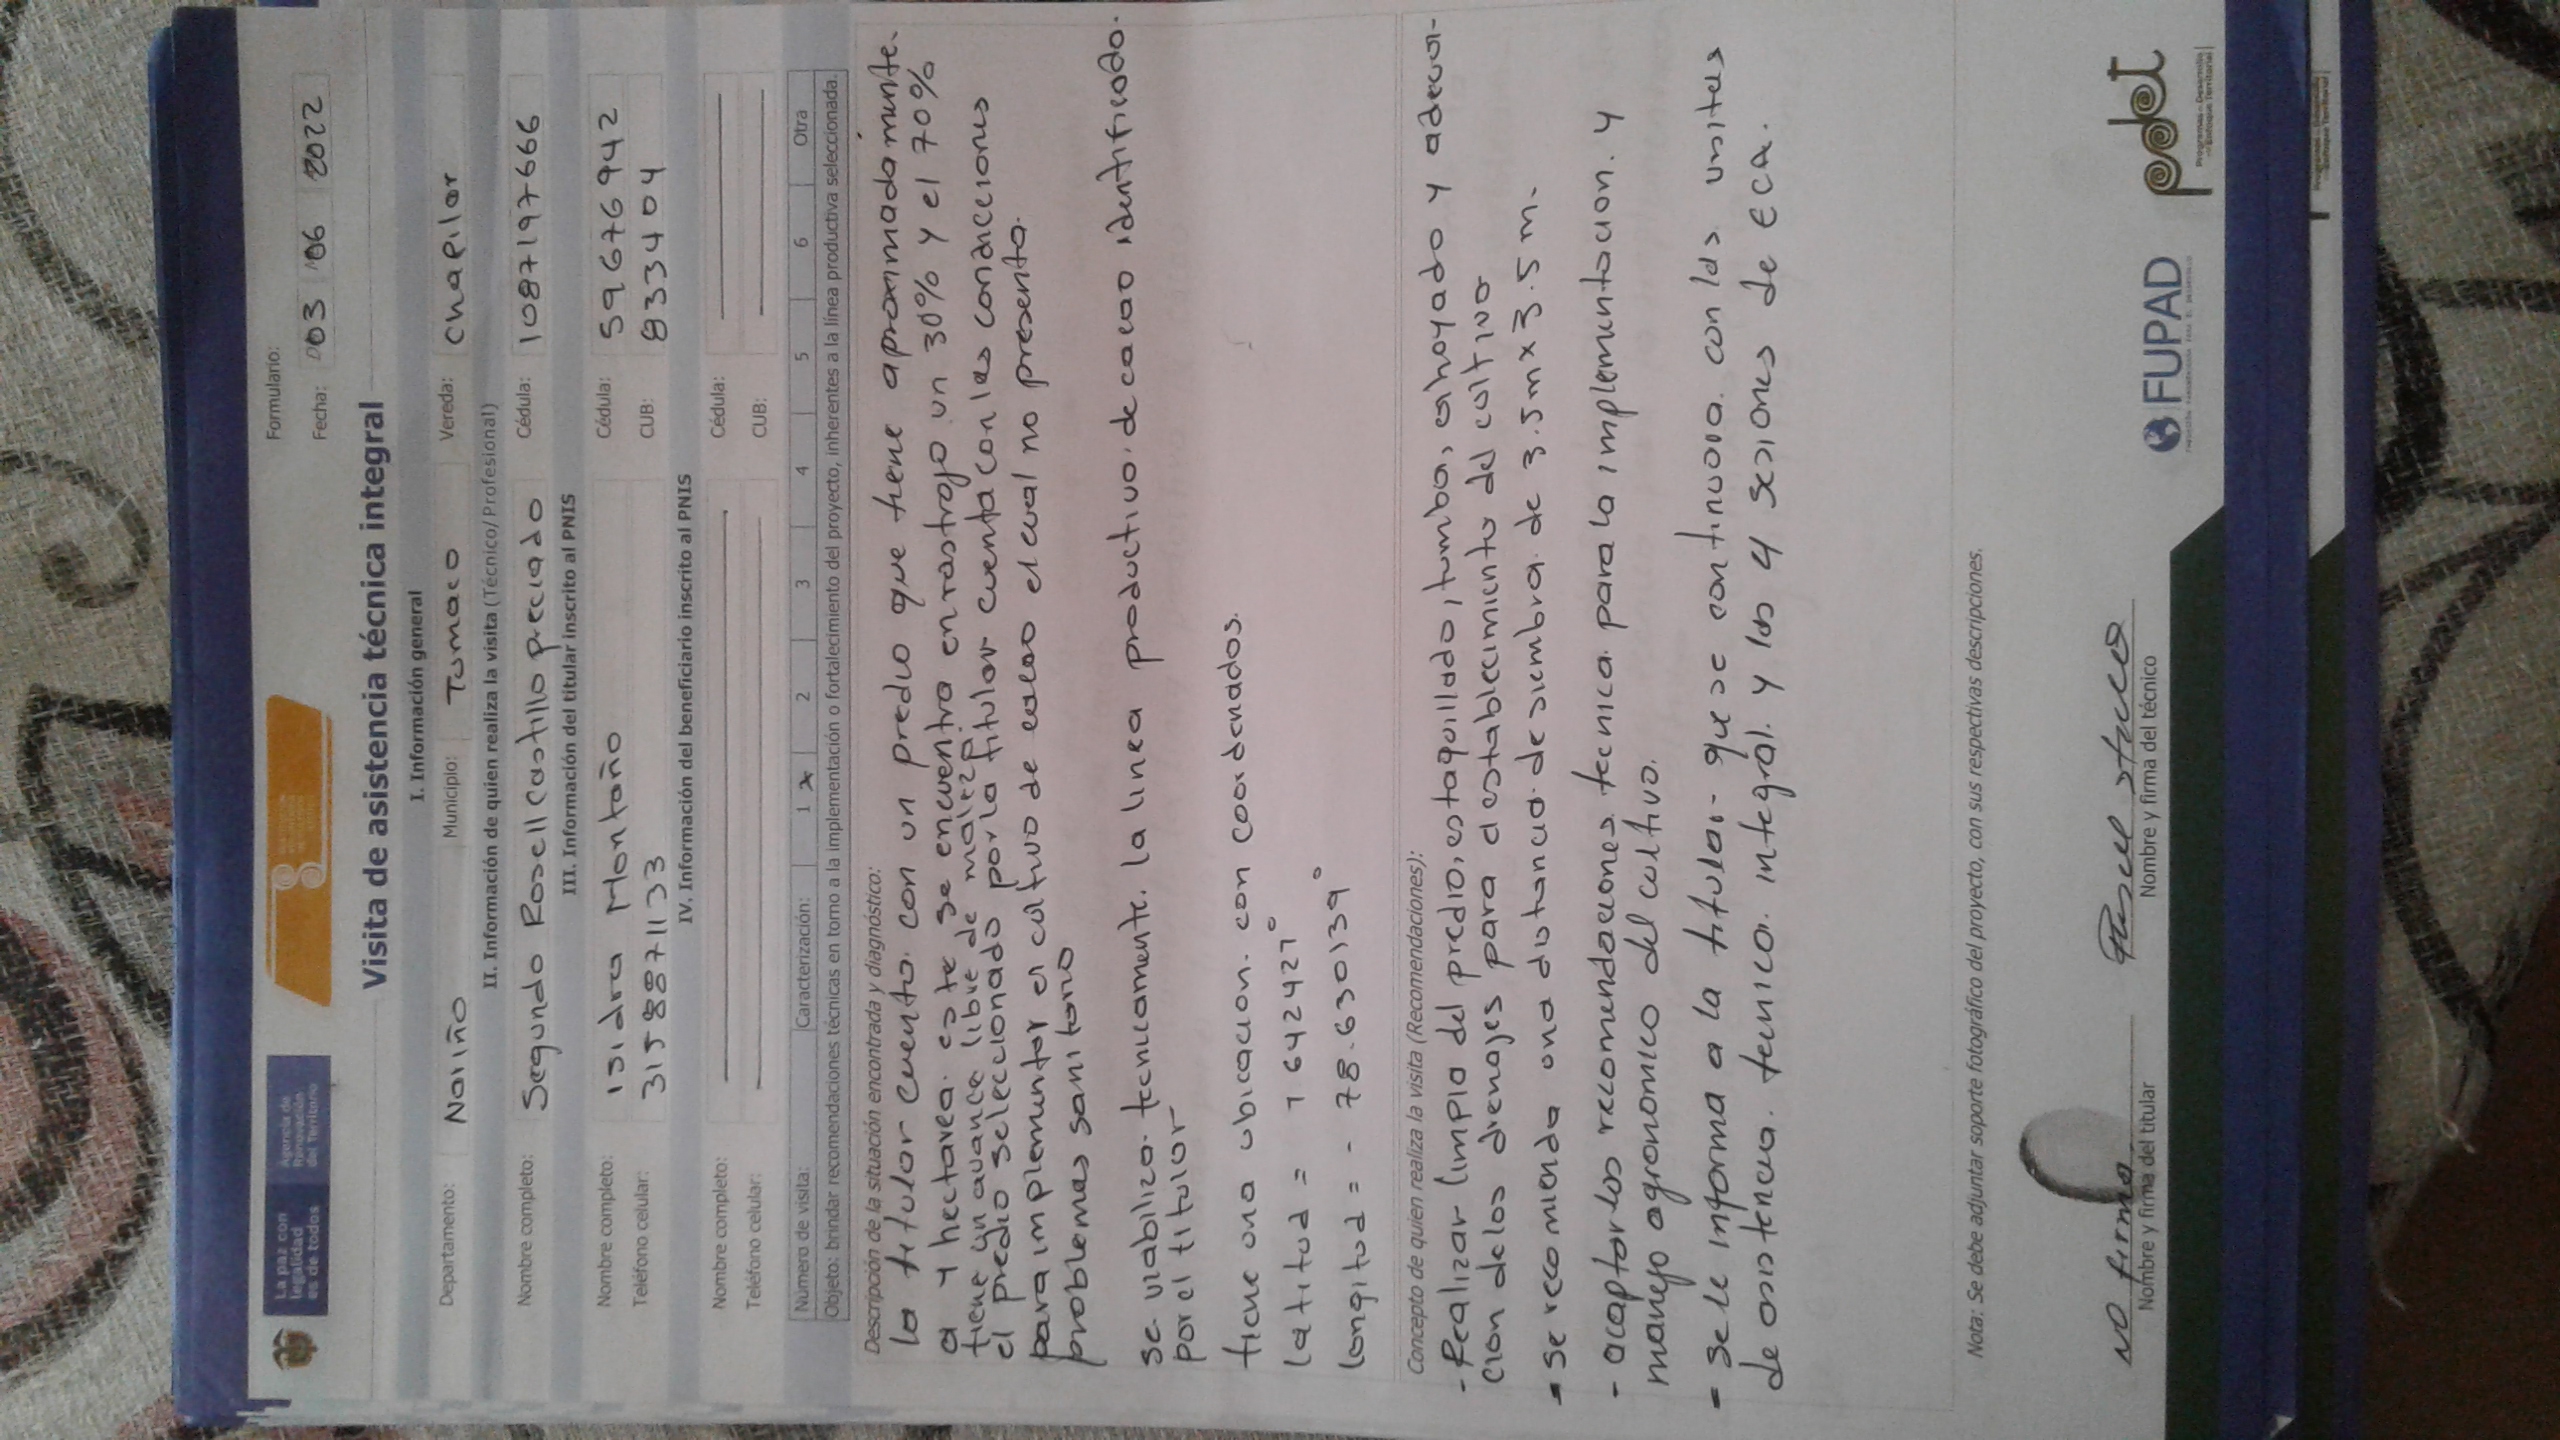 La paz con legalidad es de todos
Agencia de Renovación del Territorio
Formulario:
Fecha: 003 06 2022
Visita de asistencia técnica integral
I. Información general
Departamento: Nariño Municipio: Tumaco Vereda: Chapilar
II. Información de quien realiza la visita (Técnico/Profesional)
Nombre completo: Segundo Rosell Castillo preciado Cédula: 1087197666
III. Información del titular inscrito al PNIS
Nombre completo: Isidra Montaño Cédula: 59676942
Teléfono celular: 3158871133 CUB: 833404
IV. Información del beneficiario inscrito al PNIS
Nombre completo: Cédula:
Teléfono celular: CUB:
Número de visita: Caracterización: 1 x 2 3 4 5 6 Otra
Objeto: brindar recomendaciones técnicas en torno a la implementación o fortalecimiento del proyecto, inherentes a la línea productiva seleccionada.
Descripción de la situación encontrada y diagnóstico:
la titular cuenta. con un predio que tiene aproximadamente.
a 4 hectarea. este se encuentra en rastrojo un 30% y el 70%
tiene un avance libre de maleza.
el predio seleccionado por la titular cuenta con las condiciones
para implementar el cultivo de cacao el cual no presenta.
problemas sanitario
se viabilizo tecnicamente. la linea productivo. de cacao identificado.
por el titular
tiene una ubicacion. con coordenadas.
latitud = 1 642427°
longitud = - 78.630139°
Concepto de quien realiza la visita (Recomendaciones):
- Realizar limpia del predio, estaquillado, tumba, ahoyado y adecua-
cion de los drenajes para el establecimiento del cultivo
- se recomienda una distancia de siembra. de 3.5m x 3.5 m.
- acaptar las recomendaciones. tecnica. para la implementacion. y
manejo agronomico del cultivo.
- se le informa a la titular. que se continuara. con las visitas
de asistencia. tecnica. integral. y las 4 sesiones de ECA.
Nota: Se debe adjuntar soporte fotográfico del proyecto, con sus respectivas descripciones.
no firma
Nombre y firma del titular
Nombre y firma del técnico
FUPAD
pdet
Programas de Desarrollo
con Enfoque Territorial